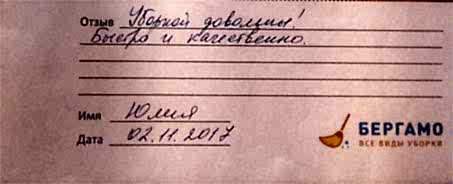 Отзыв Уборкой довольны!
Быстро и качественно.
Имя Юлия
Дата 02.11.2017
БЕРГАМО
ВСЕ ВИДЫ УБОРКИ